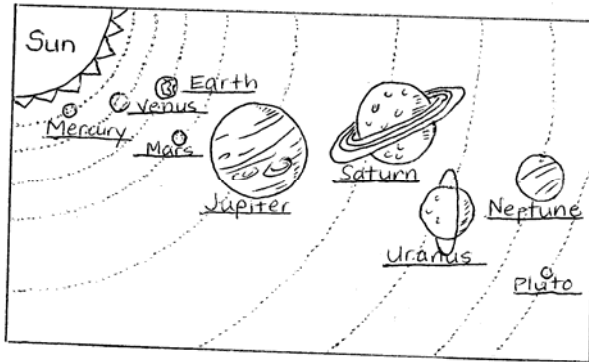 Sun
Earth
Venus
Mercury
Mars
Jupiter
Saturn
Uranus
Neptune
Pluto